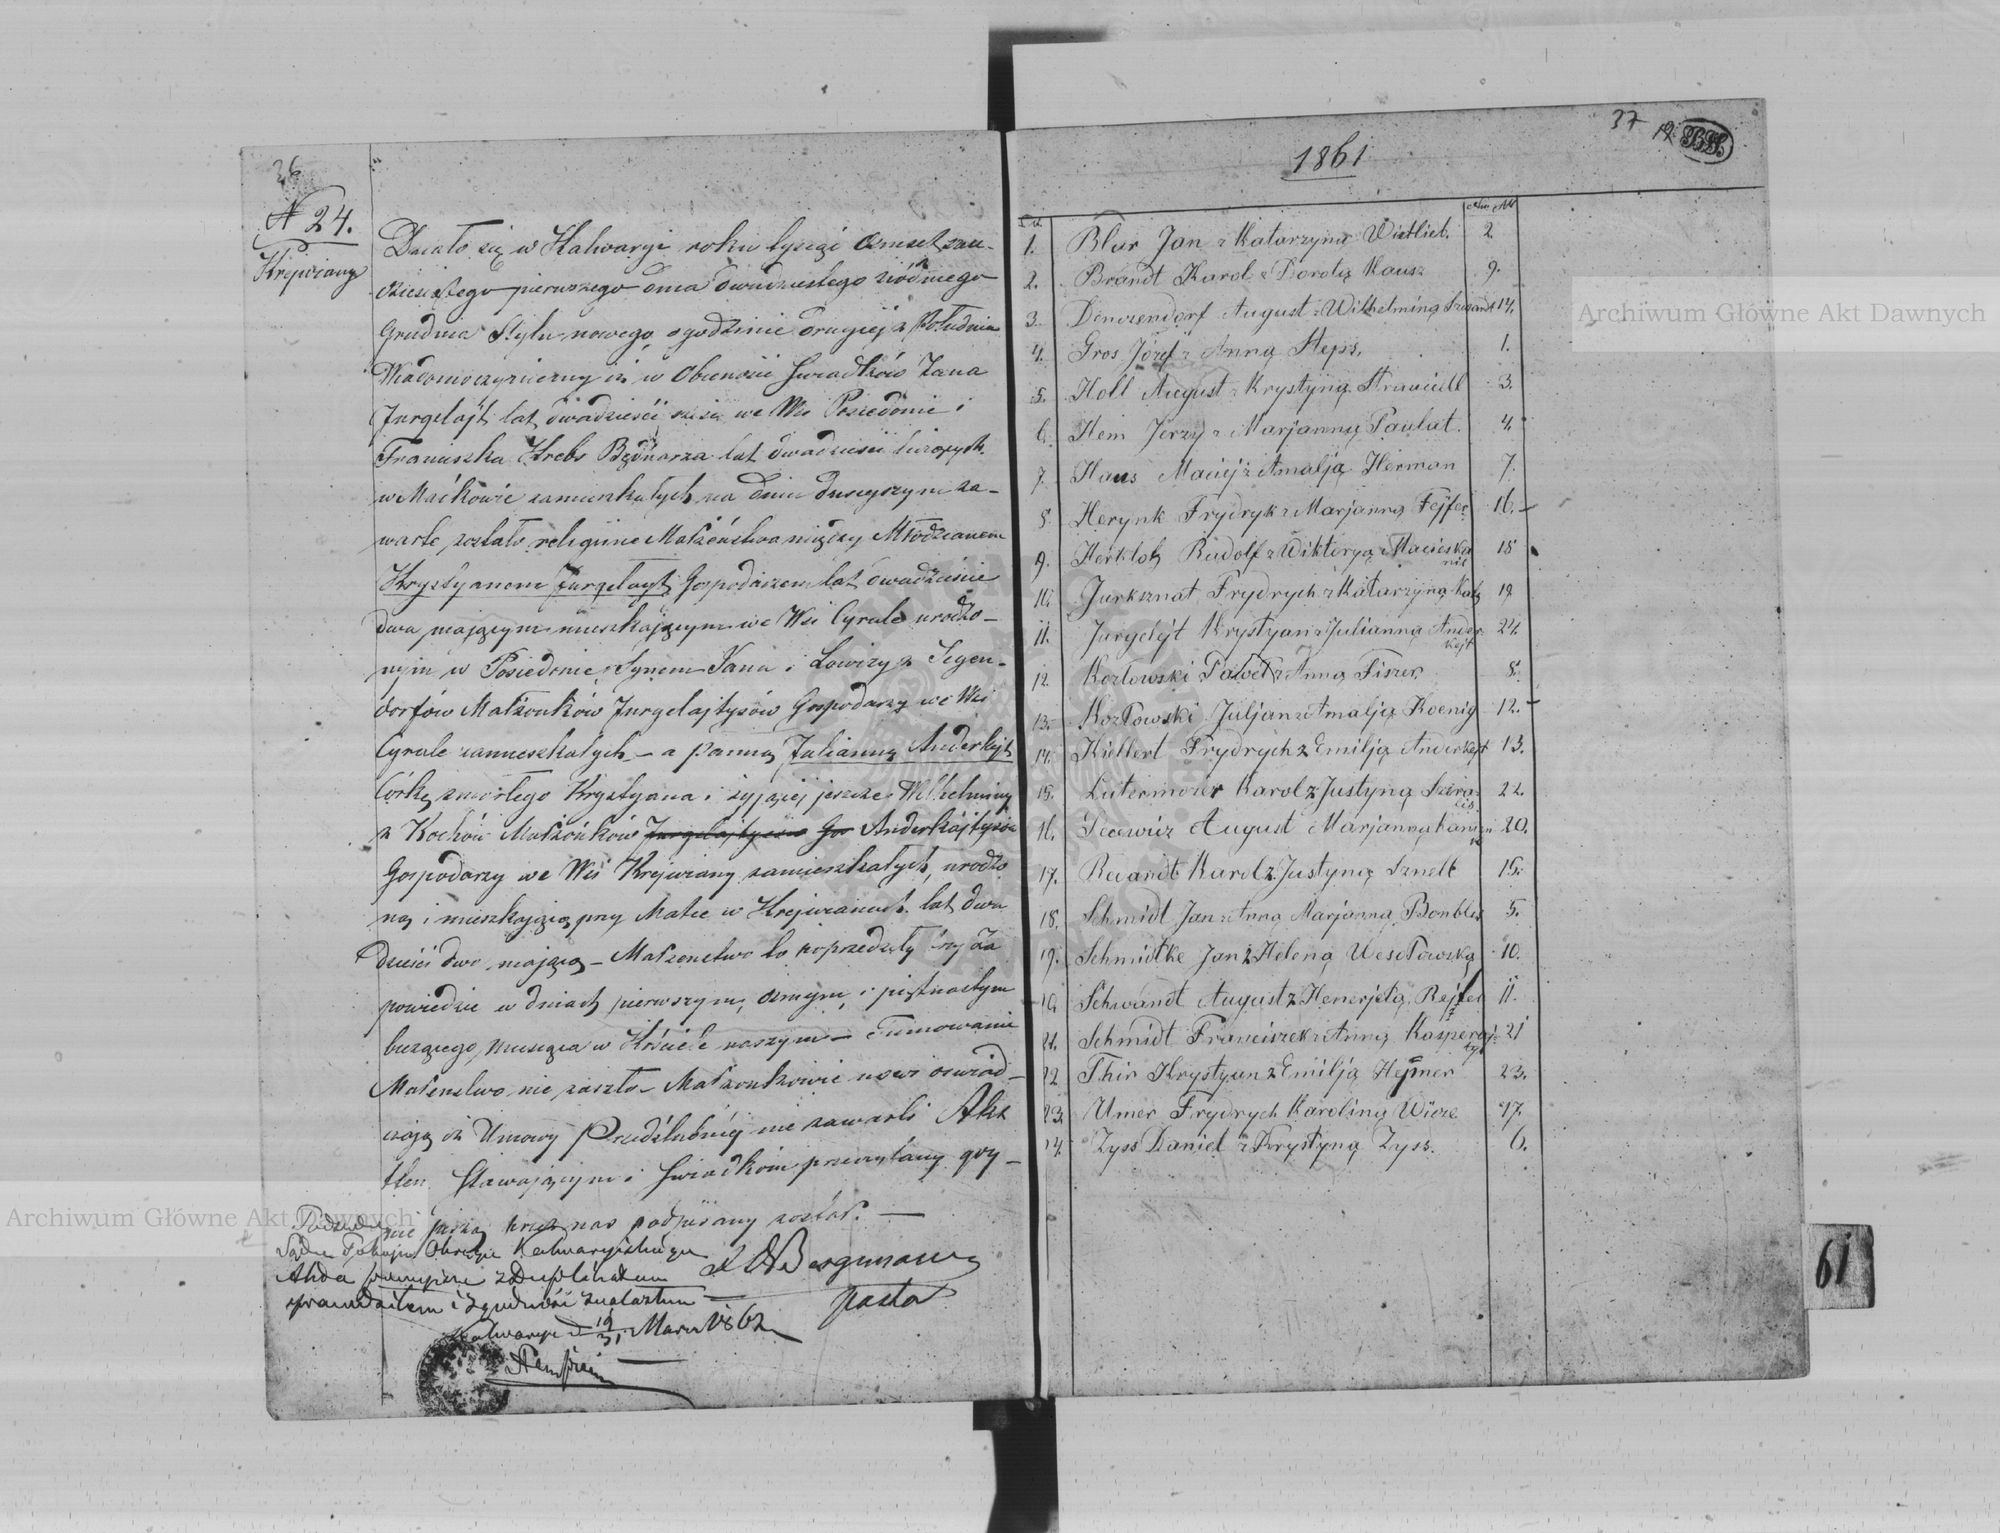 36
N 24.
Krejwiany
Działo się w Kalwaryi roku tysiąc ośmset sześ-
dziesiątego pierwszego dnia dwudziestego siódmego
Grudnia Stylu nowego, o godzinie drugiej z Południa
Wiadomo czyniemy iż w Obecności Świadków Jana
Jurgelajt lat dwadzieści sześć we Wsi Posiedonie i
Franciszka Krebs Bednarza lat dwadzieści liczących
w Maćkowie zamieszkałych na dniu dzisiejszym za-
warte zostało religijne Małżeństwo między Młodzianem
Krystyanem Jurgelajt Gospodarzem lat dwadzieście
dwa mającym mieszkającym we Wsi Cyrale urodzo-
nym w Posiedonie, Synem Jana i Lowizy z Segen-
dorfów Małżonków Jurgelajtysów Gospodarzy we Wsi
Cyrale zamieszkałych – a Panną Julianną Anderkejt
Córką zmarłego Krystyana i żyjącej jeszcze Wilhelminy
z Kochów Małżonków Jurgelajtysów Gos Anderkejtysów
Gospodarzy we Wsi Krejwiany zamieszkałych, urodzo
ną i mieszkającą przy Matce w Krejwianach lat dwa
dzieści dwa mającą – Małżeństwo to poprzedziły trzy Za
powiedzie w dniach pierwszym, ósmym, i piętnastym
bieżącego miesiąca w Kościele naszym – Tamowanie
Małżeństwa nie zaszło – Małżonkowie nowi oświad-
czają iż Umowy Przedślubnéj nie zawarli Akt
ten Stawającym i Świadkom przeczytany gdy –
nie piszą przez nas podpisany został. —
Sądu Pokoju Okręgu Kalwaryjskiego
Akta powyższe z Duplikatem
sprawdziłem i zgodność znalazłem —
Kalwarya d 19/31 Marca 1862
Pastor
37
19
1861
No Akt
1. Blur Jan z Katarzyną Wietlieb. 2.
2. Brandt Karol z Dorotą Kausz 9.
3. Denczendorf August z Wilhelminą 14.
4. Gros Józef z Anną Steps. 1.
5. Holl August z Krystyną 3.
6. Hein Jerzy z Marjanną Paulat. 4.
7. Haus Maciej z Amalją Herman 7.
8. Herynk Frydryk z Marjanną Fejfer 16.
9. Herklotz Rudolf z Wiktoryą 18
10. Jurksznat Frydrych z Katarzyną Katz 19
11. Jurgelejt Krystyan z Julianną Ander-
kejt 24.
12. Kozlowski Paweł z Anną Fiszer 8.
13. Kozłowski Juljan z Amalją Koenig 12.
14. Kiellert Frydrych z Emilją Anderkejt 13.
15. Lutermozer Karol z Justyną 22.
16. August Marjanną 20.
17. Karol z Justyną Sznelt 15.
18. Schmidt Jan z Anną Marjanną 5.
19. Schmidtke Jan z Heleną Wesołowską 10.
20. Schwandt August z Henerjetą Rejfer 11.
21. Schmidt Franciszek z Anną 21
22. Thir Krystyan z Emilją Hejmer 23.
23. Umer Frydrych Karoliną 17.
24. Zyss Daniel z Krystyną Zyss. 6.
61
Archiwum Główne Akt Dawnych
Archiwum Główne Akt Dawnych